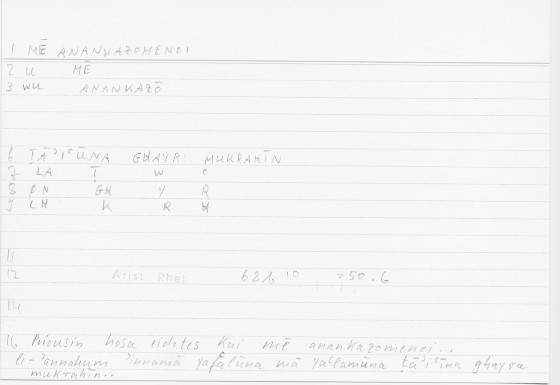 1 MĒ ANANKAZOMENOI
2 U MĒ
3 WU ANANKAZŌ
6 ṬĀʾIʿŪNA GHAYRI MUKRAHĪN
7 LA Ṭ W ʿ
8 ØN GH Y R
9 LH K R H
11
12 Arist Rhet 68b 10 = 50.6
14
16 Piousin hosa eidotes kai mē anankazomenoi..
li-ʾannahum ʾinnamā yafʿalūna mā yaʿlamūna ṭāʾiʿīna ghayra
mukrahīn..